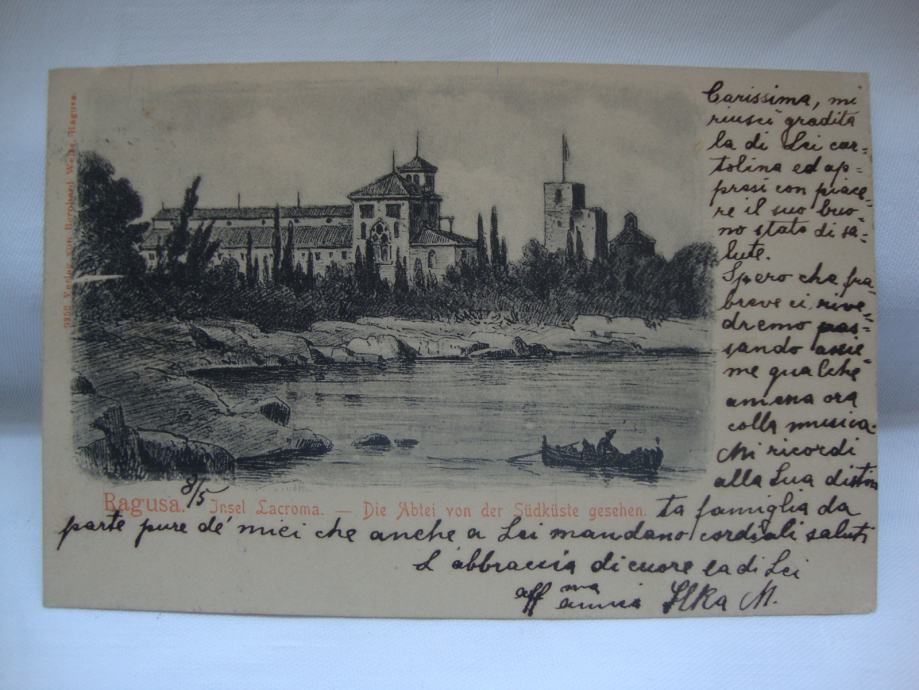 Carissima, mi
riuscì gradita
la di Lei car-
tolina ed ap-
presi con piace-
re il suo buo-
no stato di sa-
lute.
Spero che fra
breve ci rive-
dremo pas-
sando assie-
me qualche
amena ora
colla musica.
Mi ricordi
alla Sua distin
ta famiglia da
parte pure de' miei che anche a Lei mandano cordiali saluti
L'abbraccia di cuore la di Lei
aff ma amica Ilka M.
8/5
Ragusa. Insel Lacroma. — Die Abtei von der Südküste gesehen.
Verlag von Bernhard Weiss, Ragusa.